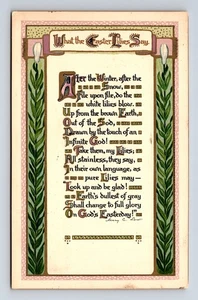 What the Easter Lilies Say.
After the Winter, after the
Snow,
File upon file, do the
white lilies blow.
Up from the brown Earth,
Out of the Sod,
Drawn by the touch of an
Infinite God!
Take them, my Lilies;
All stainless, they say,
In their own language, as
pure Lilies may—
Look up and be glad!
Earth's dullest of gray
Shall change to full glory
On God's Easterday!